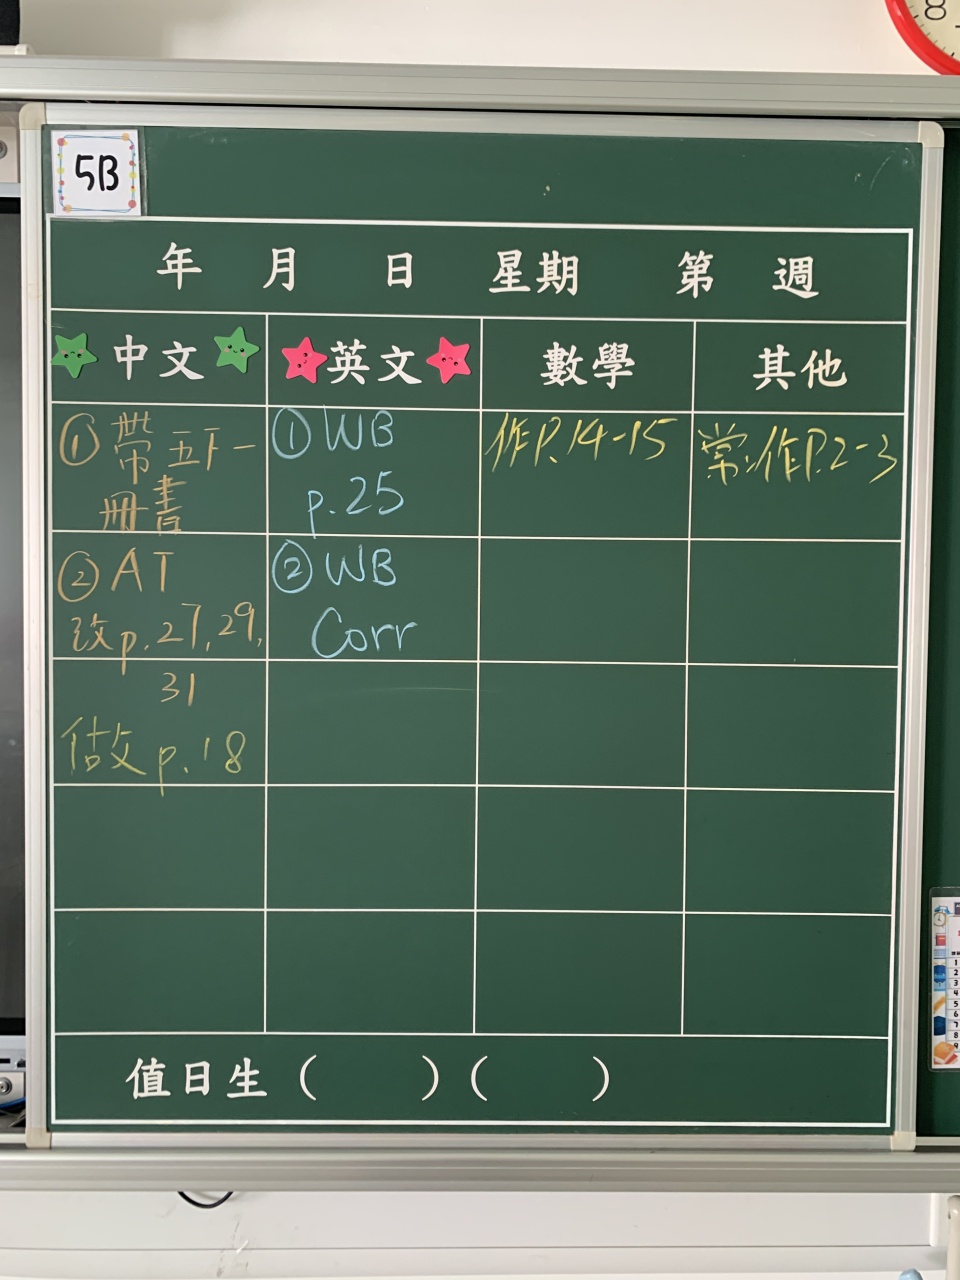 5B
年 月 日 星期 第 週
中文
英文
數學
其他
①帶五下一
冊書
②AT
改p.27,29,
31
做p.18
①WB
p.25
②WB
Corr
作P.14-15
常:作P.2-3
值日生( )( )
8
1
2
3
4
5
6
7
8
9